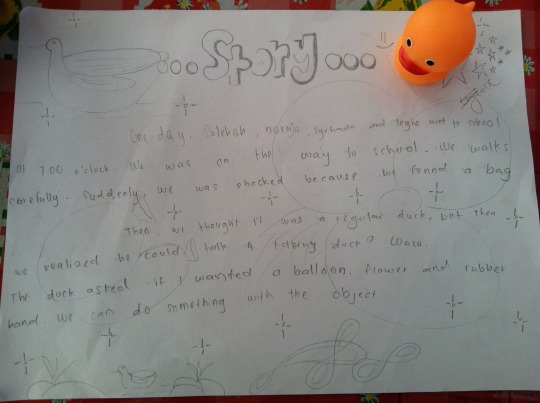 ...Story...
One day. Solehah, norma, Syuhada and Seyha went to school
at 7.00 o'clock. We was on the way to school. We walks
carefully. Suddenly, we was shocked because we found a bag
Then, we thought it was a regular duck, but then
we realized he could talk. A talking duck? Wow.
The duck asked if I wanted a balloon, flower and rubber
band. We can do something with the object